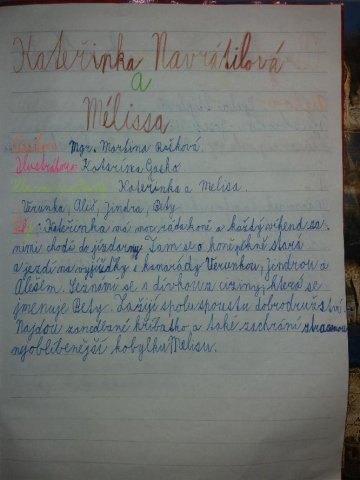 Kateřinka Navrátilová
a
Mélissa
Mgr. Martina Rošková
Ilustrátor: Katarína Gasko
Kateřinka a Melisa.
Verunka, Aleš, Jindra, Bety
Děj: Kateřinka má moc ráda koně a každý víkend za
nimi chodí do jízdárny. Tam se o koně pěkně stará
a jezdí na vyjížďky s kamarády Verunkou, Jindrou a
Alešem. Seznámí se s dívkou z ciziny, která se
jmenuje Bety. Zažijí spolu spoustu dobrodružství.
Najdou zanedbané hříbátko a také zachrání ztracenou
nejoblíbenější kobylku Melisu.